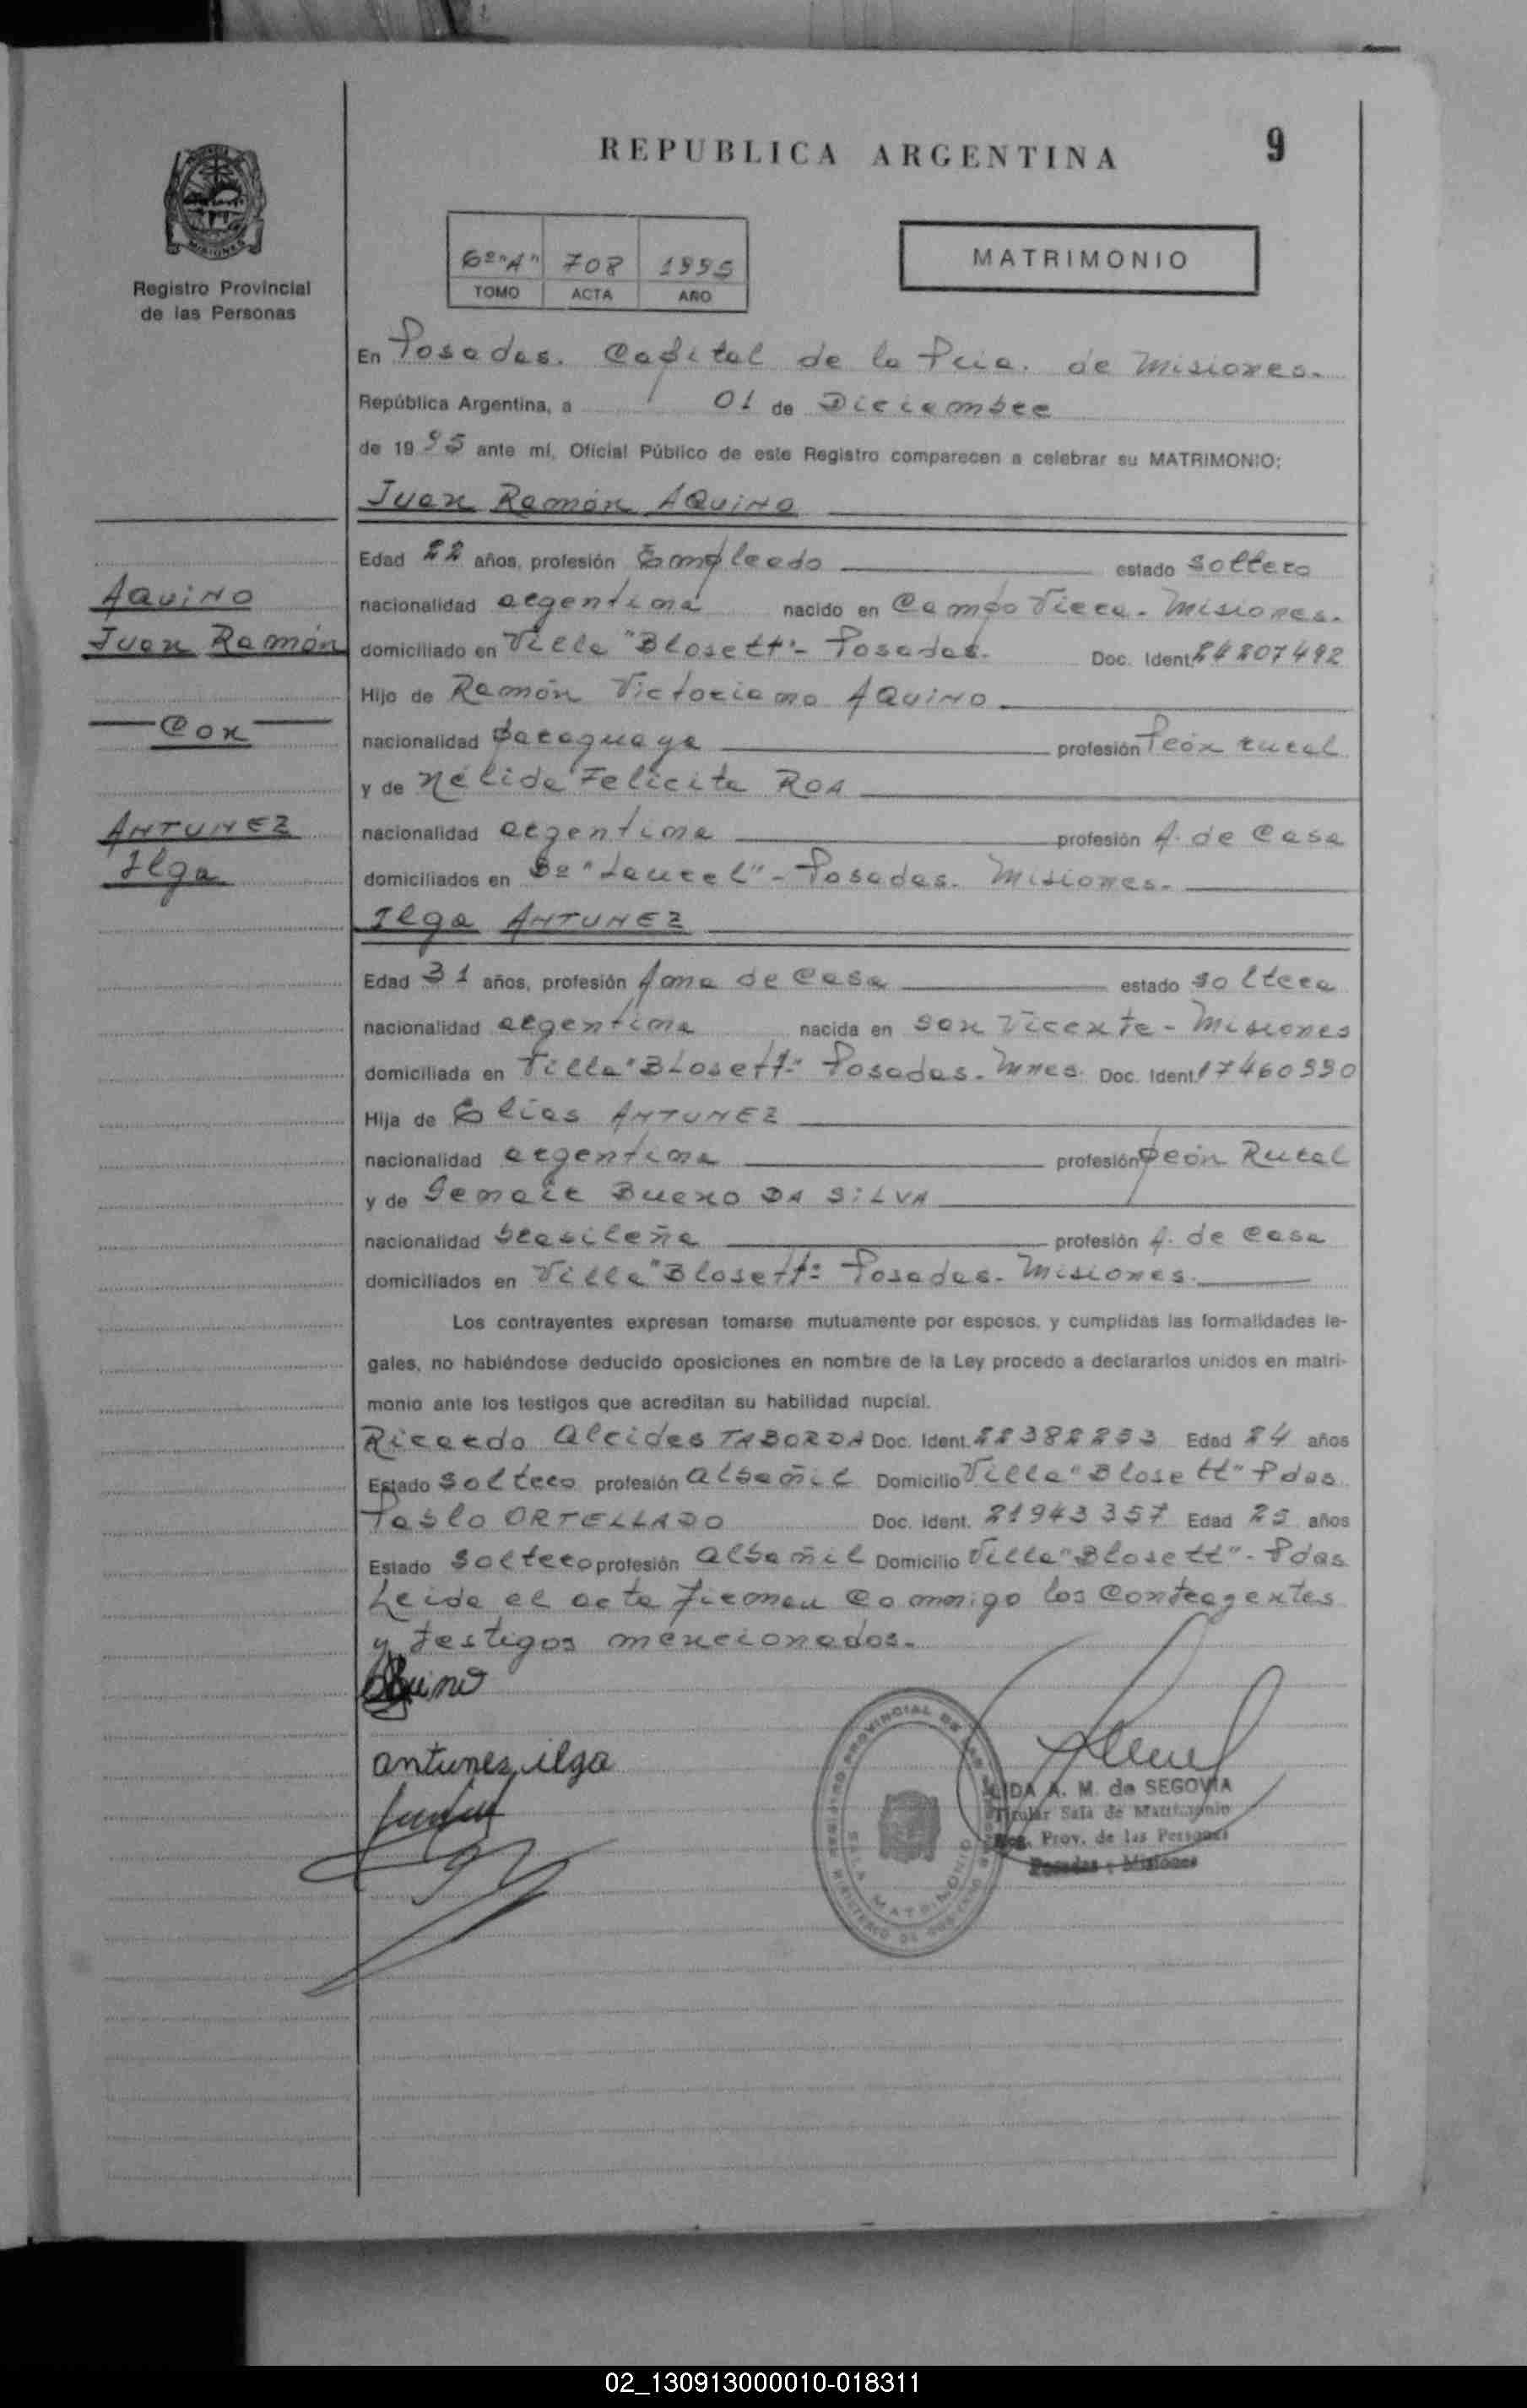 REPUBLICA ARGENTINA
9
Registro Provincial
de las Personas
6º"A" 708 1995
TOMO ACTA AÑO
MATRIMONIO
En Posadas. Capital de la Pcia. de Misiones.
República Argentina, a 01 de Diciembre
de 1995 ante mí, Oficial Público de este Registro comparecen a celebrar su MATRIMONIO:
Juan Ramón AQUINO
AQUINO
Juan Ramón
Con
ANTUNEZ
Ilga
Edad 22 años, profesión Empleado estado soltero
nacionalidad argentina nacido en Campo Viera - Misiones.
domiciliado en Villa "Blosett" - Posadas. Doc. Ident. 24207492
Hijo de Ramón Victoriano AQUINO
nacionalidad paraguaya profesión Peón rural
y de Nélida Felicita ROA
nacionalidad argentina profesión A. de Casa
domiciliados en Bº "Laurel" - Posadas. Misiones.
Ilga ANTUNEZ
Edad 31 años, profesión Ama de Casa estado soltera
nacionalidad argentina nacida en San Vicente - Misiones
domiciliada en Villa "Blosett" Posadas. Mnes. Doc. Ident. 17460990
Hija de Elias ANTUNEZ
nacionalidad argentina profesión peón Rural
y de Genair BUENO DA SILVA
nacionalidad brasileña profesión A. de Casa
domiciliados en Villa "Blosett" Posadas. Misiones.
Los contrayentes expresan tomarse mutuamente por esposos, y cumplidas las formalidades le-
gales, no habiéndose deducido oposiciones en nombre de la Ley procedo a declararlos unidos en matri-
monio ante los testigos que acreditan su habilidad nupcial.
Ricardo Alcides TABORDA Doc. Ident. 22382253 Edad 24 años
Estado soltero profesión albañil Domicilio Villa "Blosett" Pdas.
Pablo ORTELLADO Doc. Ident. 21943357 Edad 25 años
Estado soltero profesión albañil Domicilio Villa "Blosett" - Pdas
Leida el acta firman conmigo los Contrayentes
y testigos mencionados.
antunez ilga
LIDA A. M. de SEGOVIA
Titular Sala de Matrimonio
Reg. Prov. de las Personas
Posadas - Misiones
SALA MATRIMONIO
02_130913000010-018311